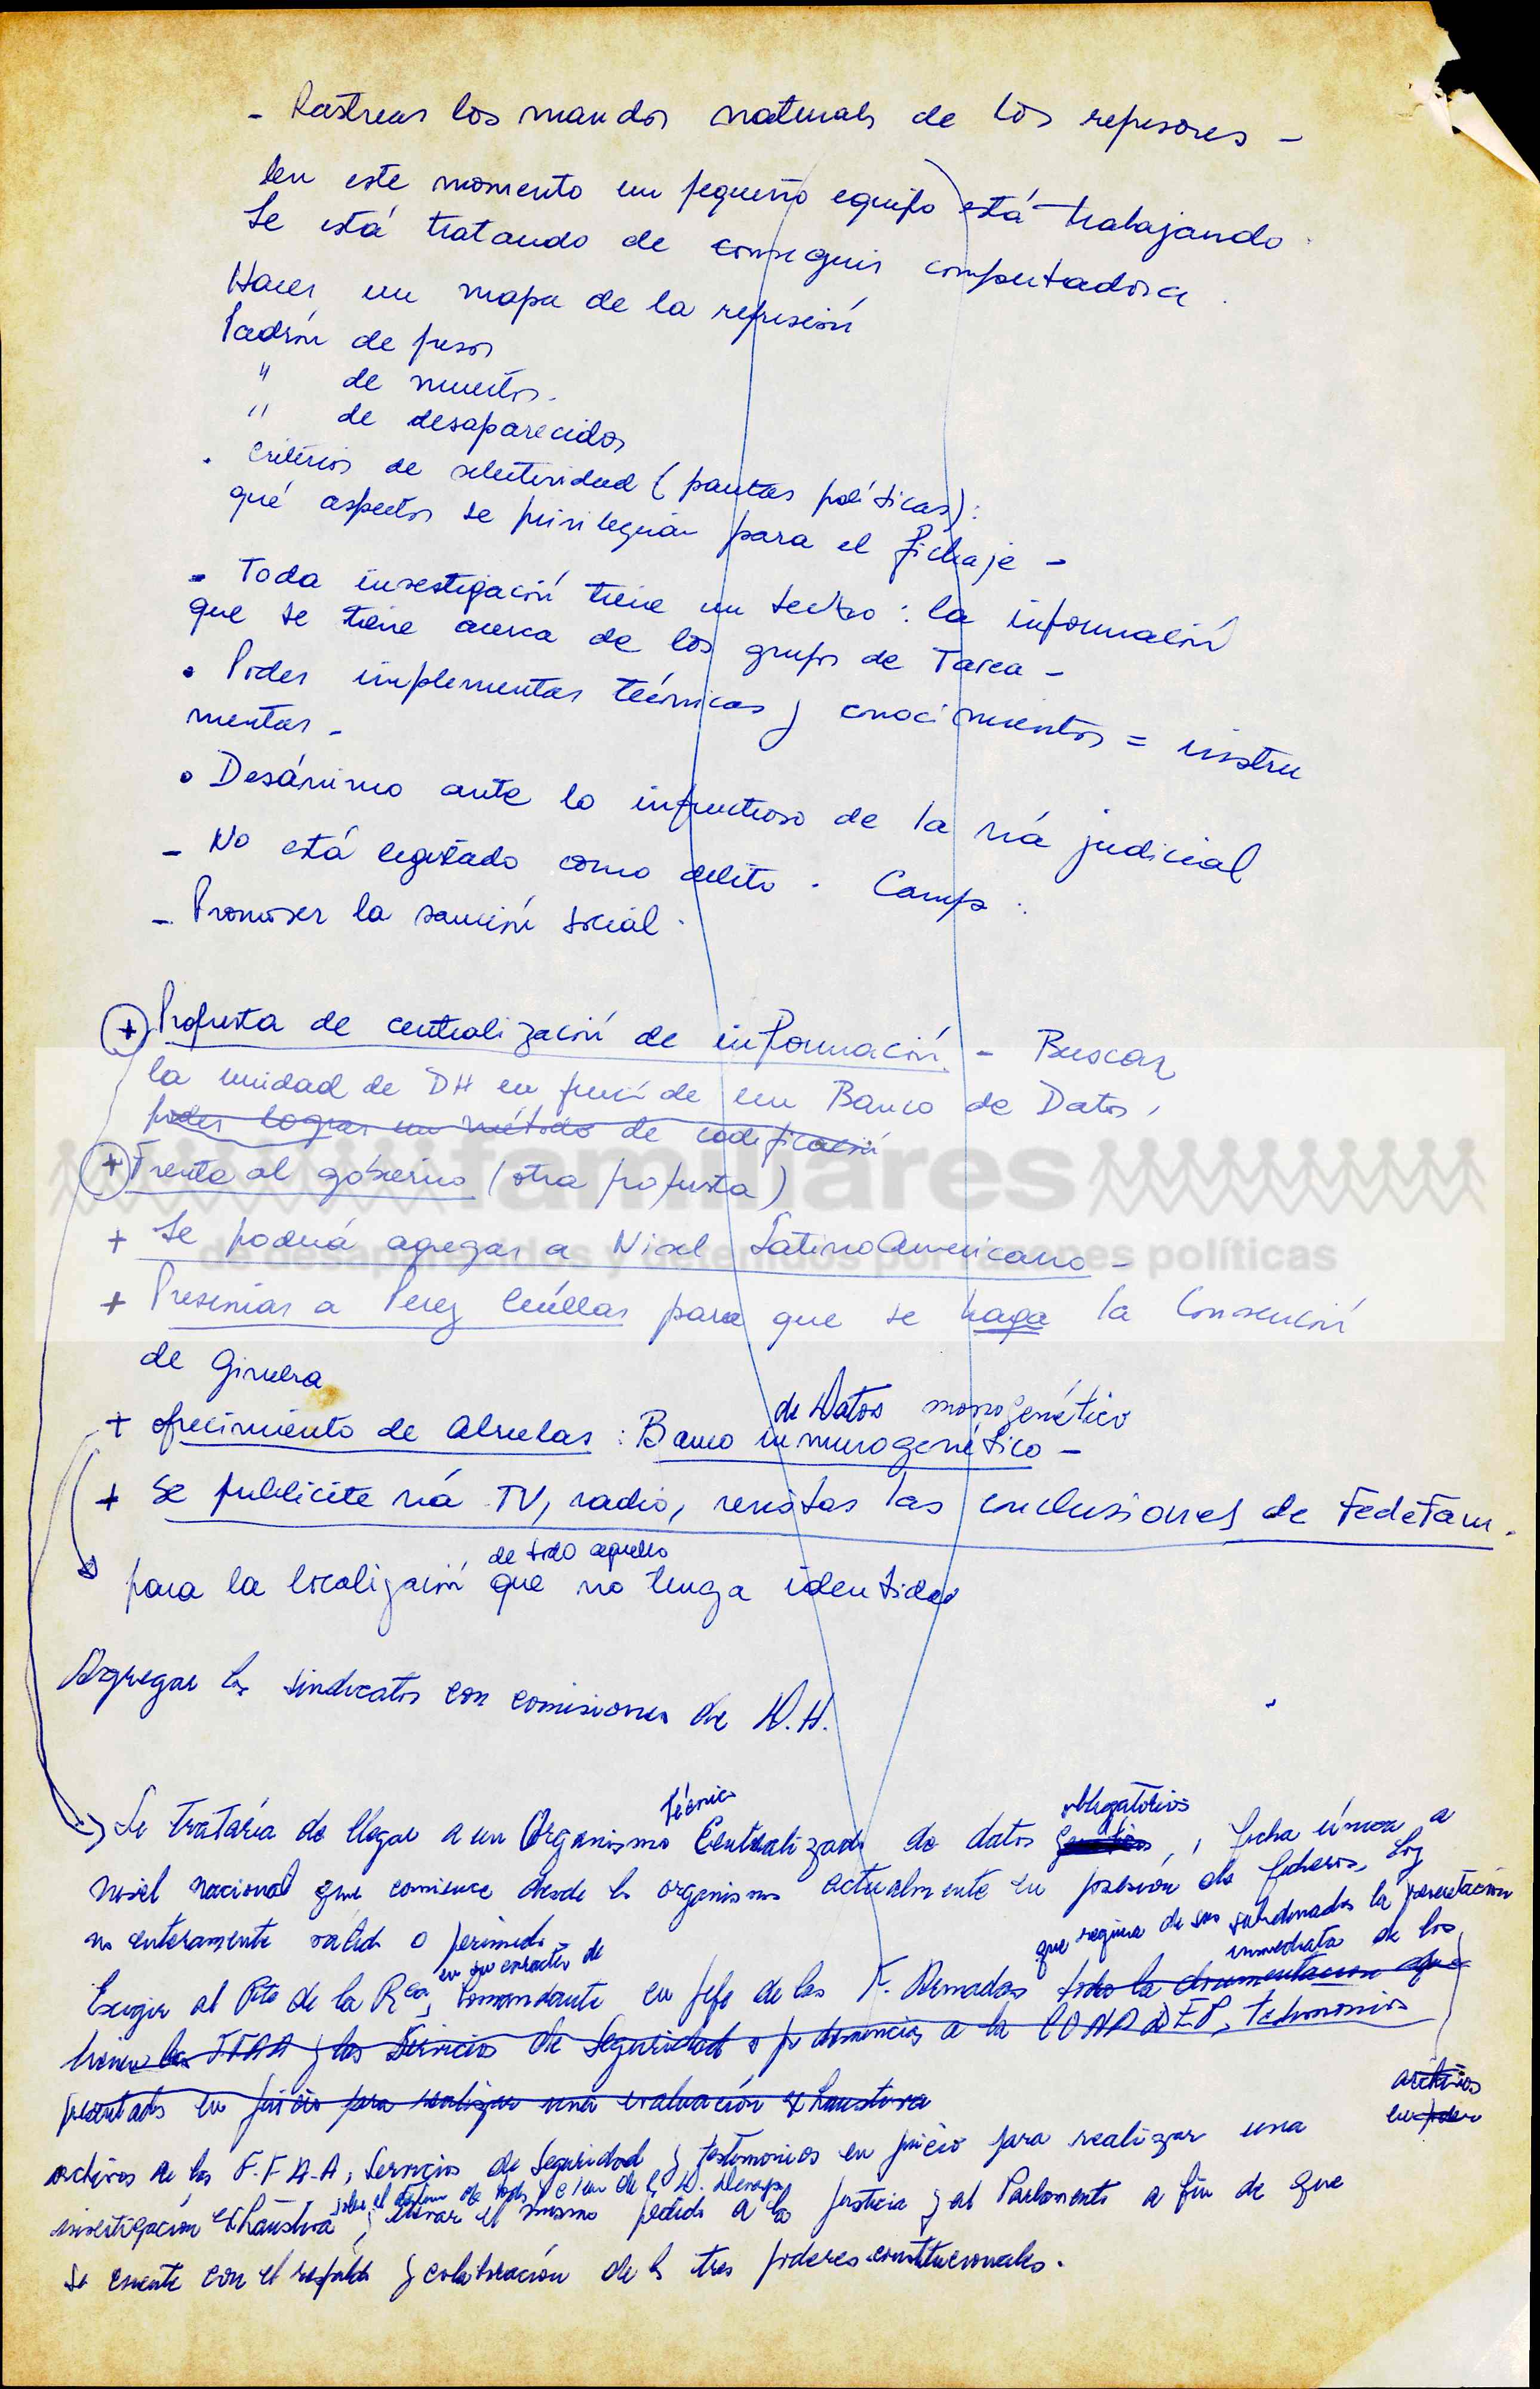 - Rastrear los mandos naturales de los represores -
En este momento un pequeño equipo está trabajando.
Se está tratando de conseguir computadora.
Hacer un mapa de la represión
Padrón de presos
" de muertos.
" de desaparecidos
. Criterios de selectividad (pautas políticas):
qué aspectos se privilegian para el fichaje -
- Toda investigación tiene un techo: la información
que se tiene acerca de los grupos de Tarea -
. Poder implementar técnicas y conocimientos = instru
mentar -
. Desánimo ante lo infructuoso de la vía judicial
- No está legislado como delito. Camps.
- Promover la sanción social.
+ Propuesta de centralización de información - Buscar
la unidad de DH en func. de un Banco de Datos,
poder lograr un método de codificación
+ Frente al gobierno (otra propuesta)
familiares
+ Se podrá agregar a Nivel LatinoAmericano -
de desaparecidos y detenidos por razones políticas
+ Presentar a Perez Cuéllar para que se haga la Convención
de Ginebra
de Datos monogenético
+ ofrecimiento de Abuelas: Banco inmunogenético -
+ Se publicite vía TV, radio, revistas las conclusiones de Fedefam.
de todo aquello
para la localización que no tenga identidad
Agregar los sindicatos con comisiones de D.H.
Técnico obligatorios
Se trataría de llegar a un Organismo Centralizado de datos , ficha única a
nivel nacional que comience desde los organismos actualmente en posesión de ficheros, hoy
no enteramente válido o perimido.
en su carácter de que requiera de sus subordinados la presentación
inmediata de los
Exigir al Pte de la Rca, Comandante en Jefe de las F. Armadas todo la documentacion que
tienen las FFAA y los Servicios de Seguridad o por denuncias a la CONADEP, testimonios
presentados en juicio para realizar una evaluación exhaustiva
archivos
en poder
archivos de las F.F.A.A, Servicios de Seguridad y testimonios en juicio para realizar una
sobre el destino de todos y c/uno de los D.
investigación exhaustiva, y elevar el mismo pedido a la Justicia y al Parlamento a fin de que
se cuente con el respaldo y colaboración de los tres poderes constitucionales.